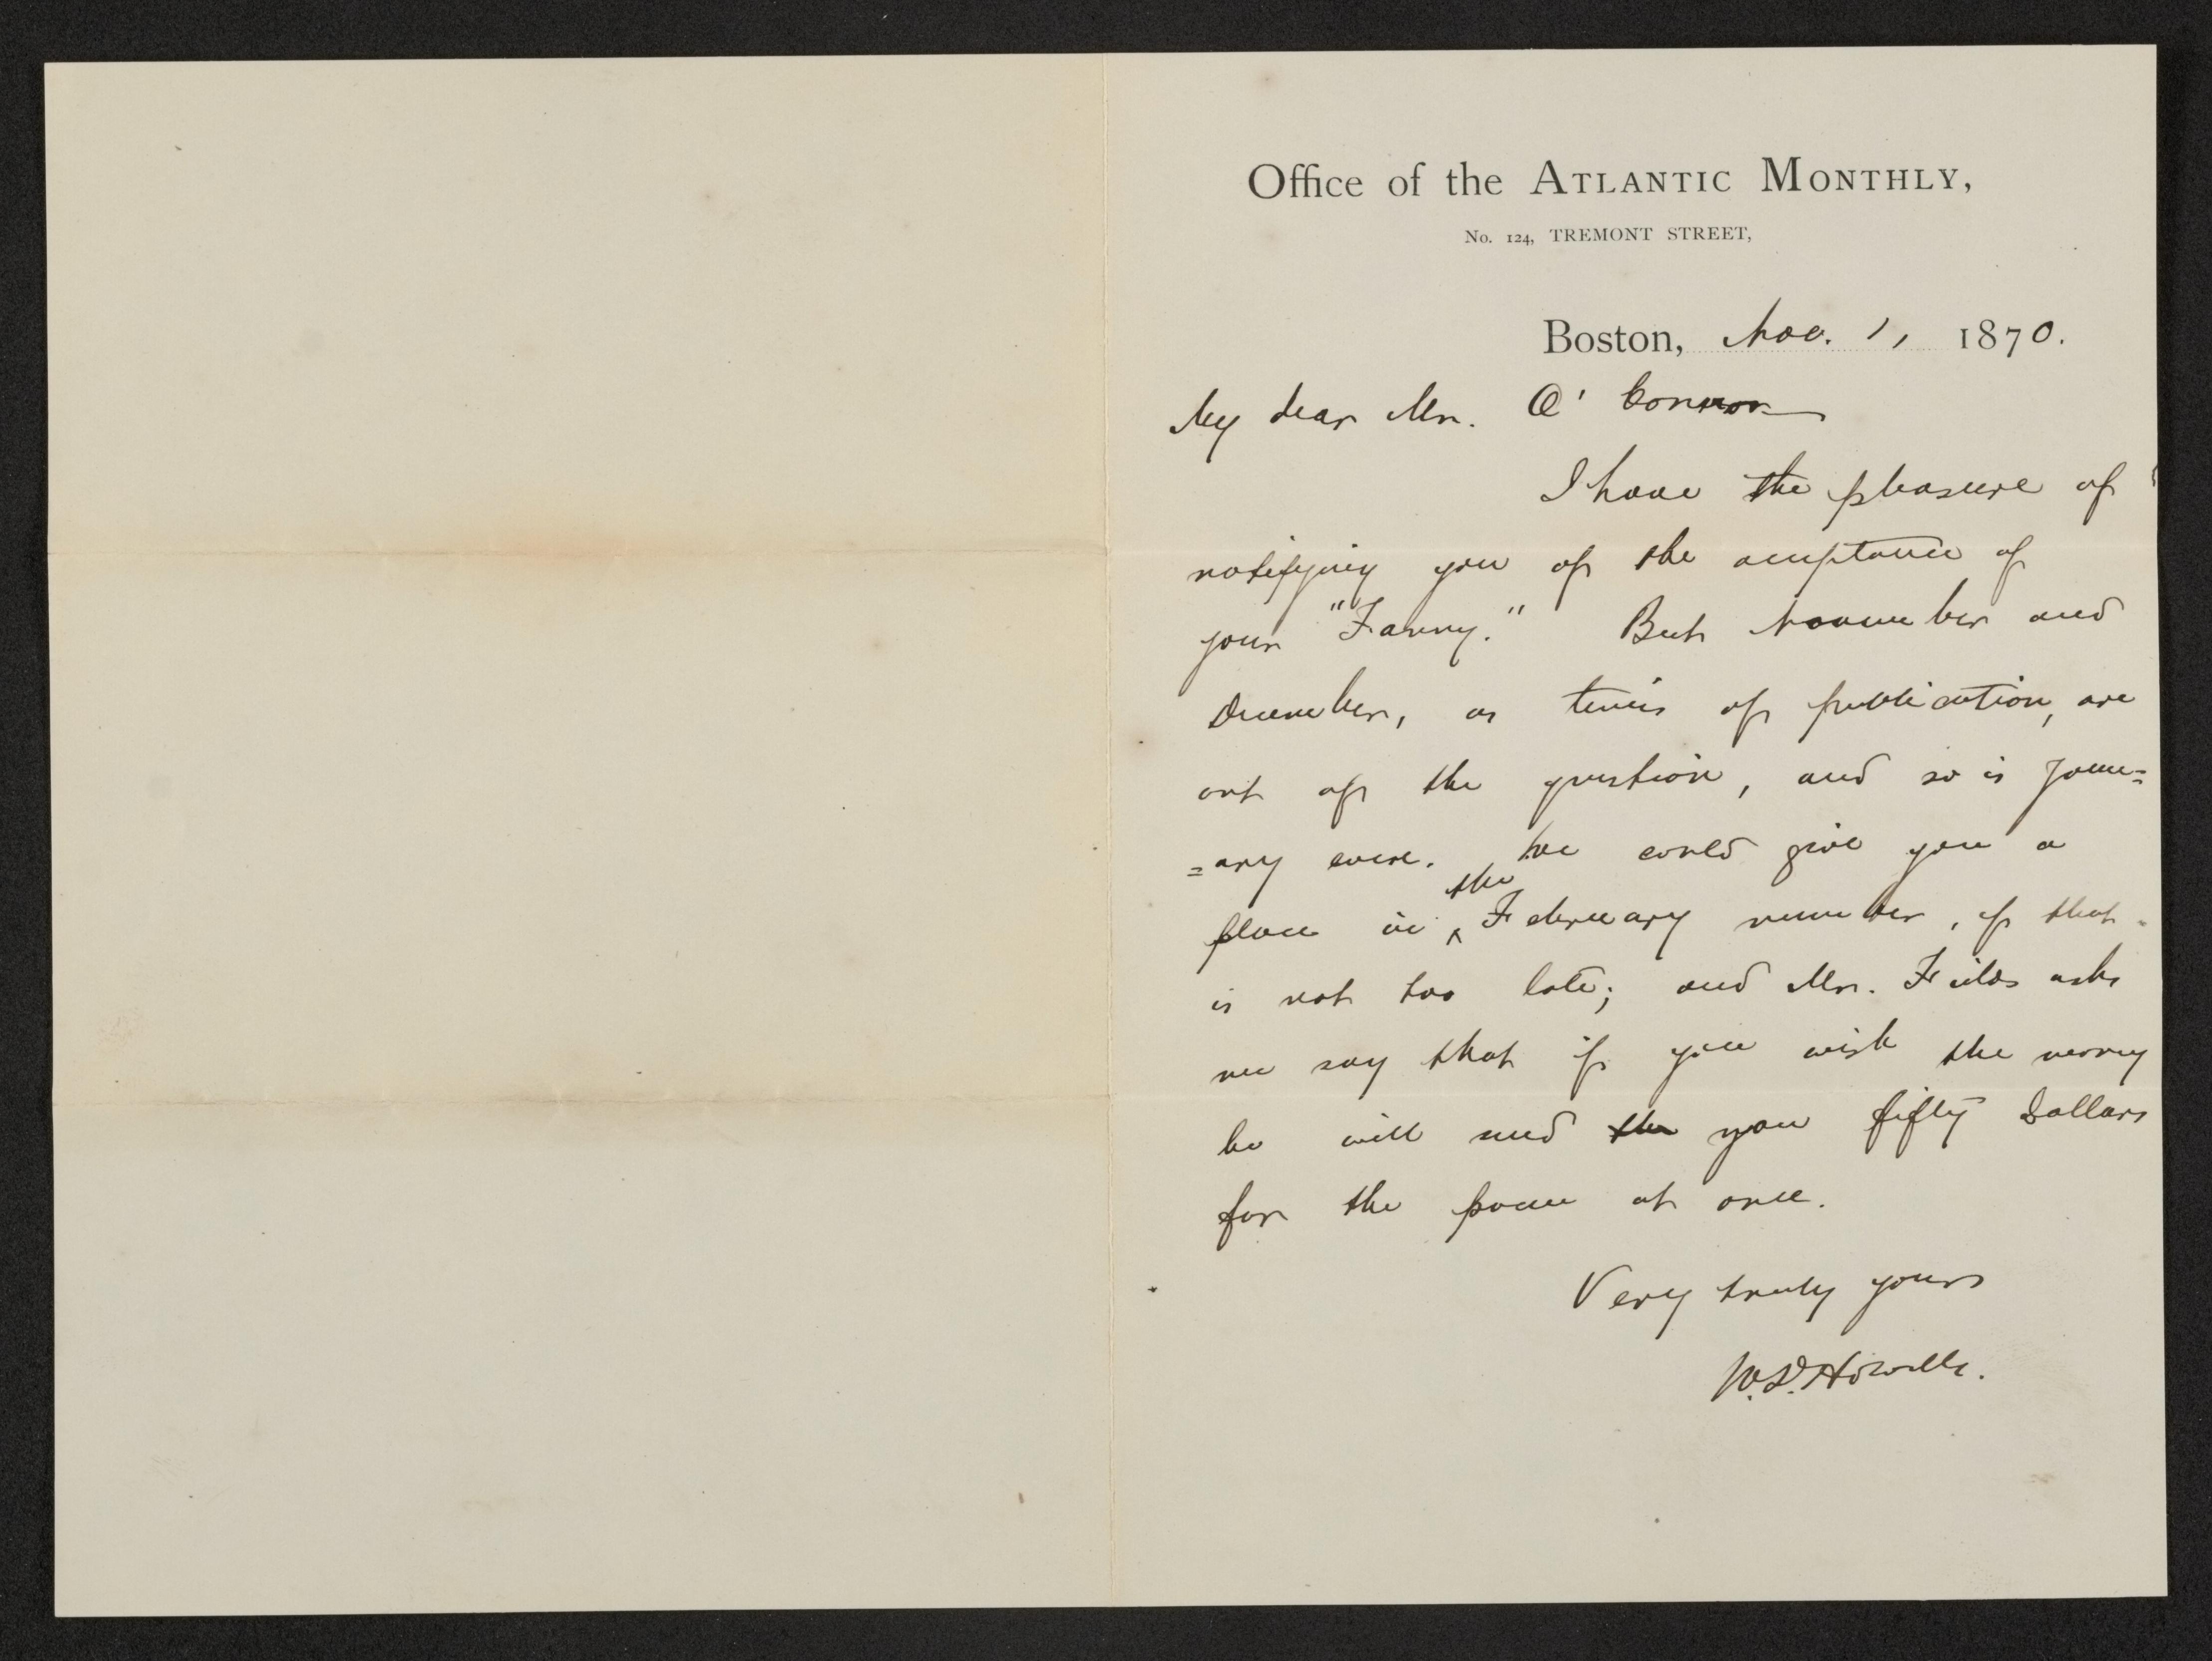 Office of the ATLANTIC MONTHLY,
No. 124, TREMONT STREET,
Boston, Nov. 1, 1870.
My dear Mr. O'Connor
I have the pleasure of
notifying you of the acceptance of
your "Fanny." But November and
December, as times of publication, are
out of the question, and so is Janu=
=ary even. We could give you a
place in the February number, if that
is not too late; and Mr. Fields asks
me say that if you wish the money
he will send the you fifty dollars
for the poem at once.
Very truly yours
W.D. Howells.